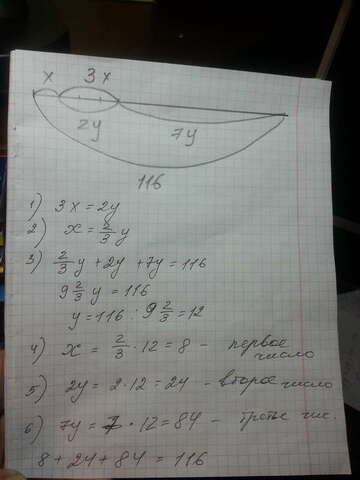 x 3x
2y 7y
116
1) 3x = 2y
2) x = 2/3 y
3) 2/3 y + 2y + 7y = 116
9 2/3 y = 116
y = 116 : 9 2/3 = 12
4) x = 2/3 · 12 = 8 - первое
число
5) 2y = 2 · 12 = 24 - второе число
6) 7y = 7 · 12 = 84 - третье чис.
8 + 24 + 84 = 116